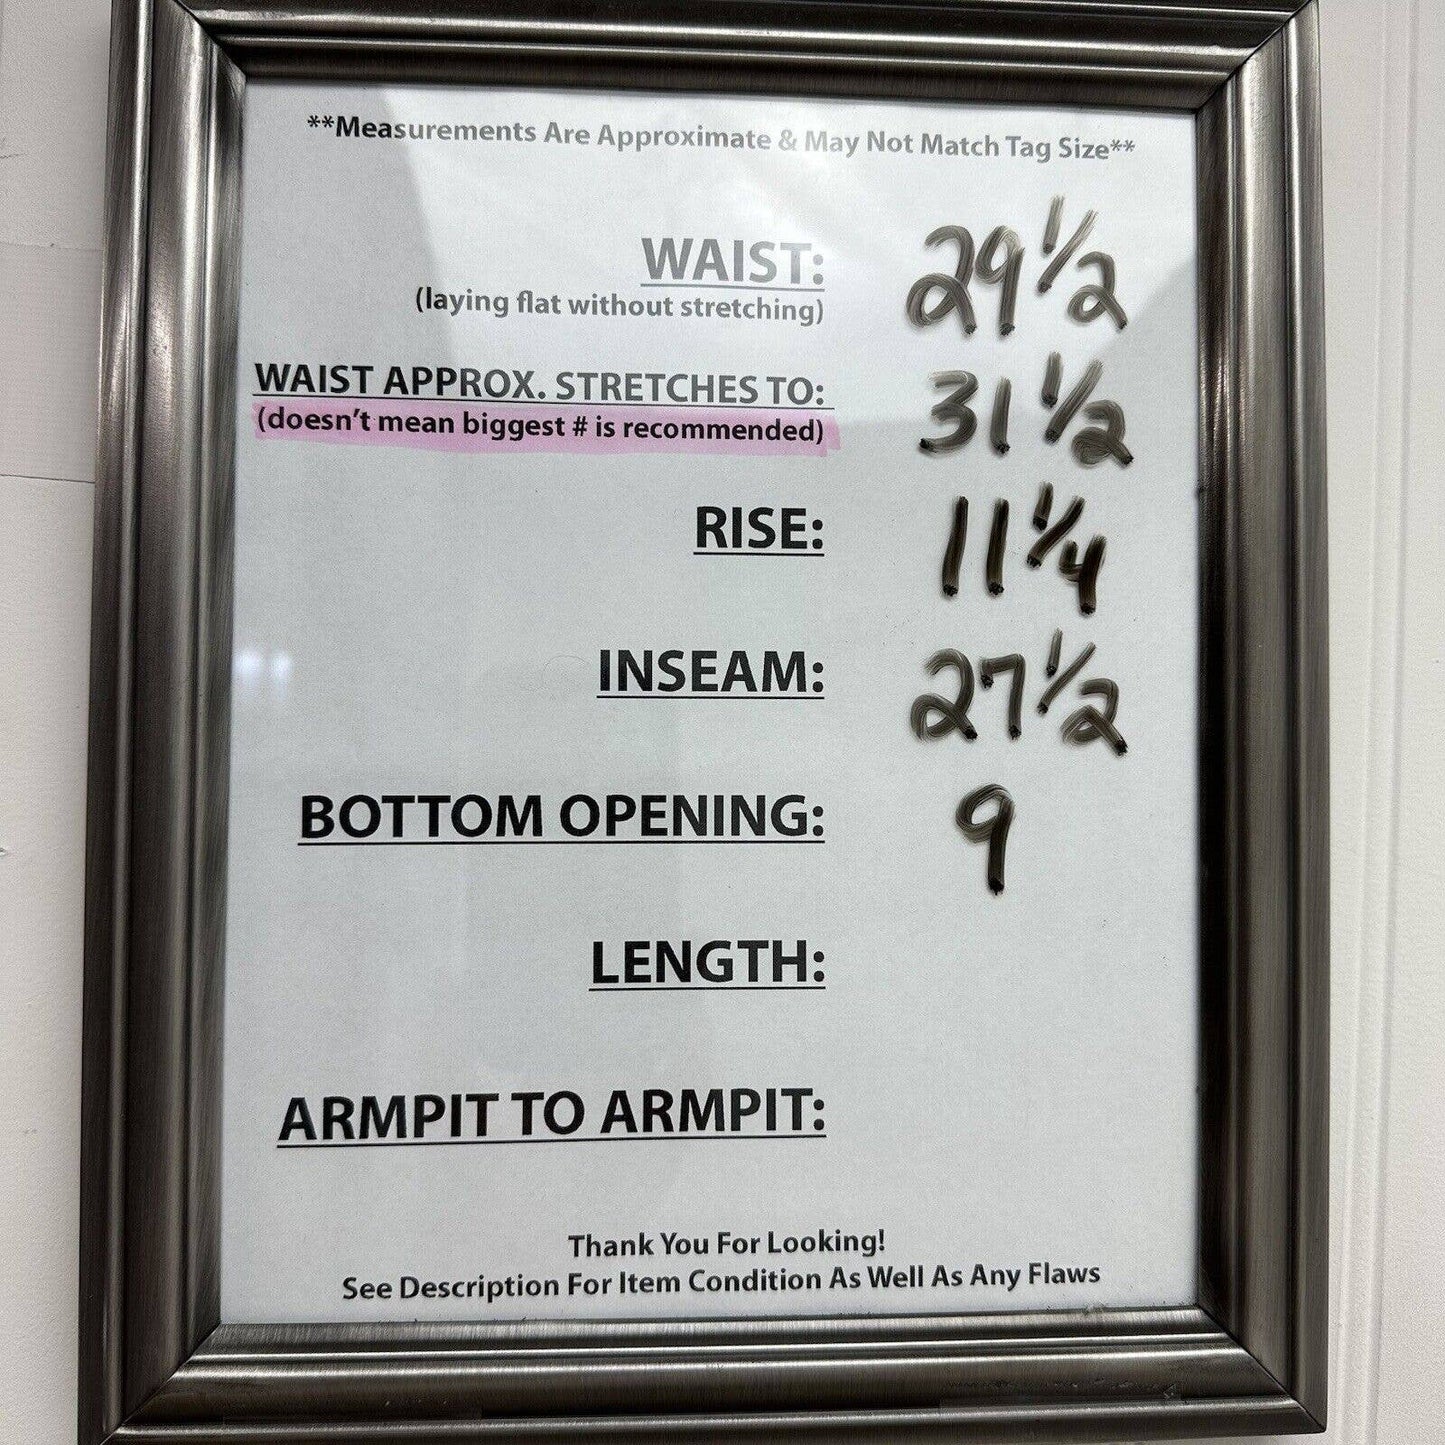 **Measurements Are Approximate & May Not Match Tag Size**
WAIST: 29 1/2
(laying flat without stretching)
WAIST APPROX. STRETCHES TO: 31 1/2
(doesn't mean biggest # is recommended)
RISE: 11 1/4
INSEAM: 27 1/2
BOTTOM OPENING: 9
LENGTH:
ARMPIT TO ARMPIT:
Thank You For Looking!
See Description For Item Condition As Well As Any Flaws